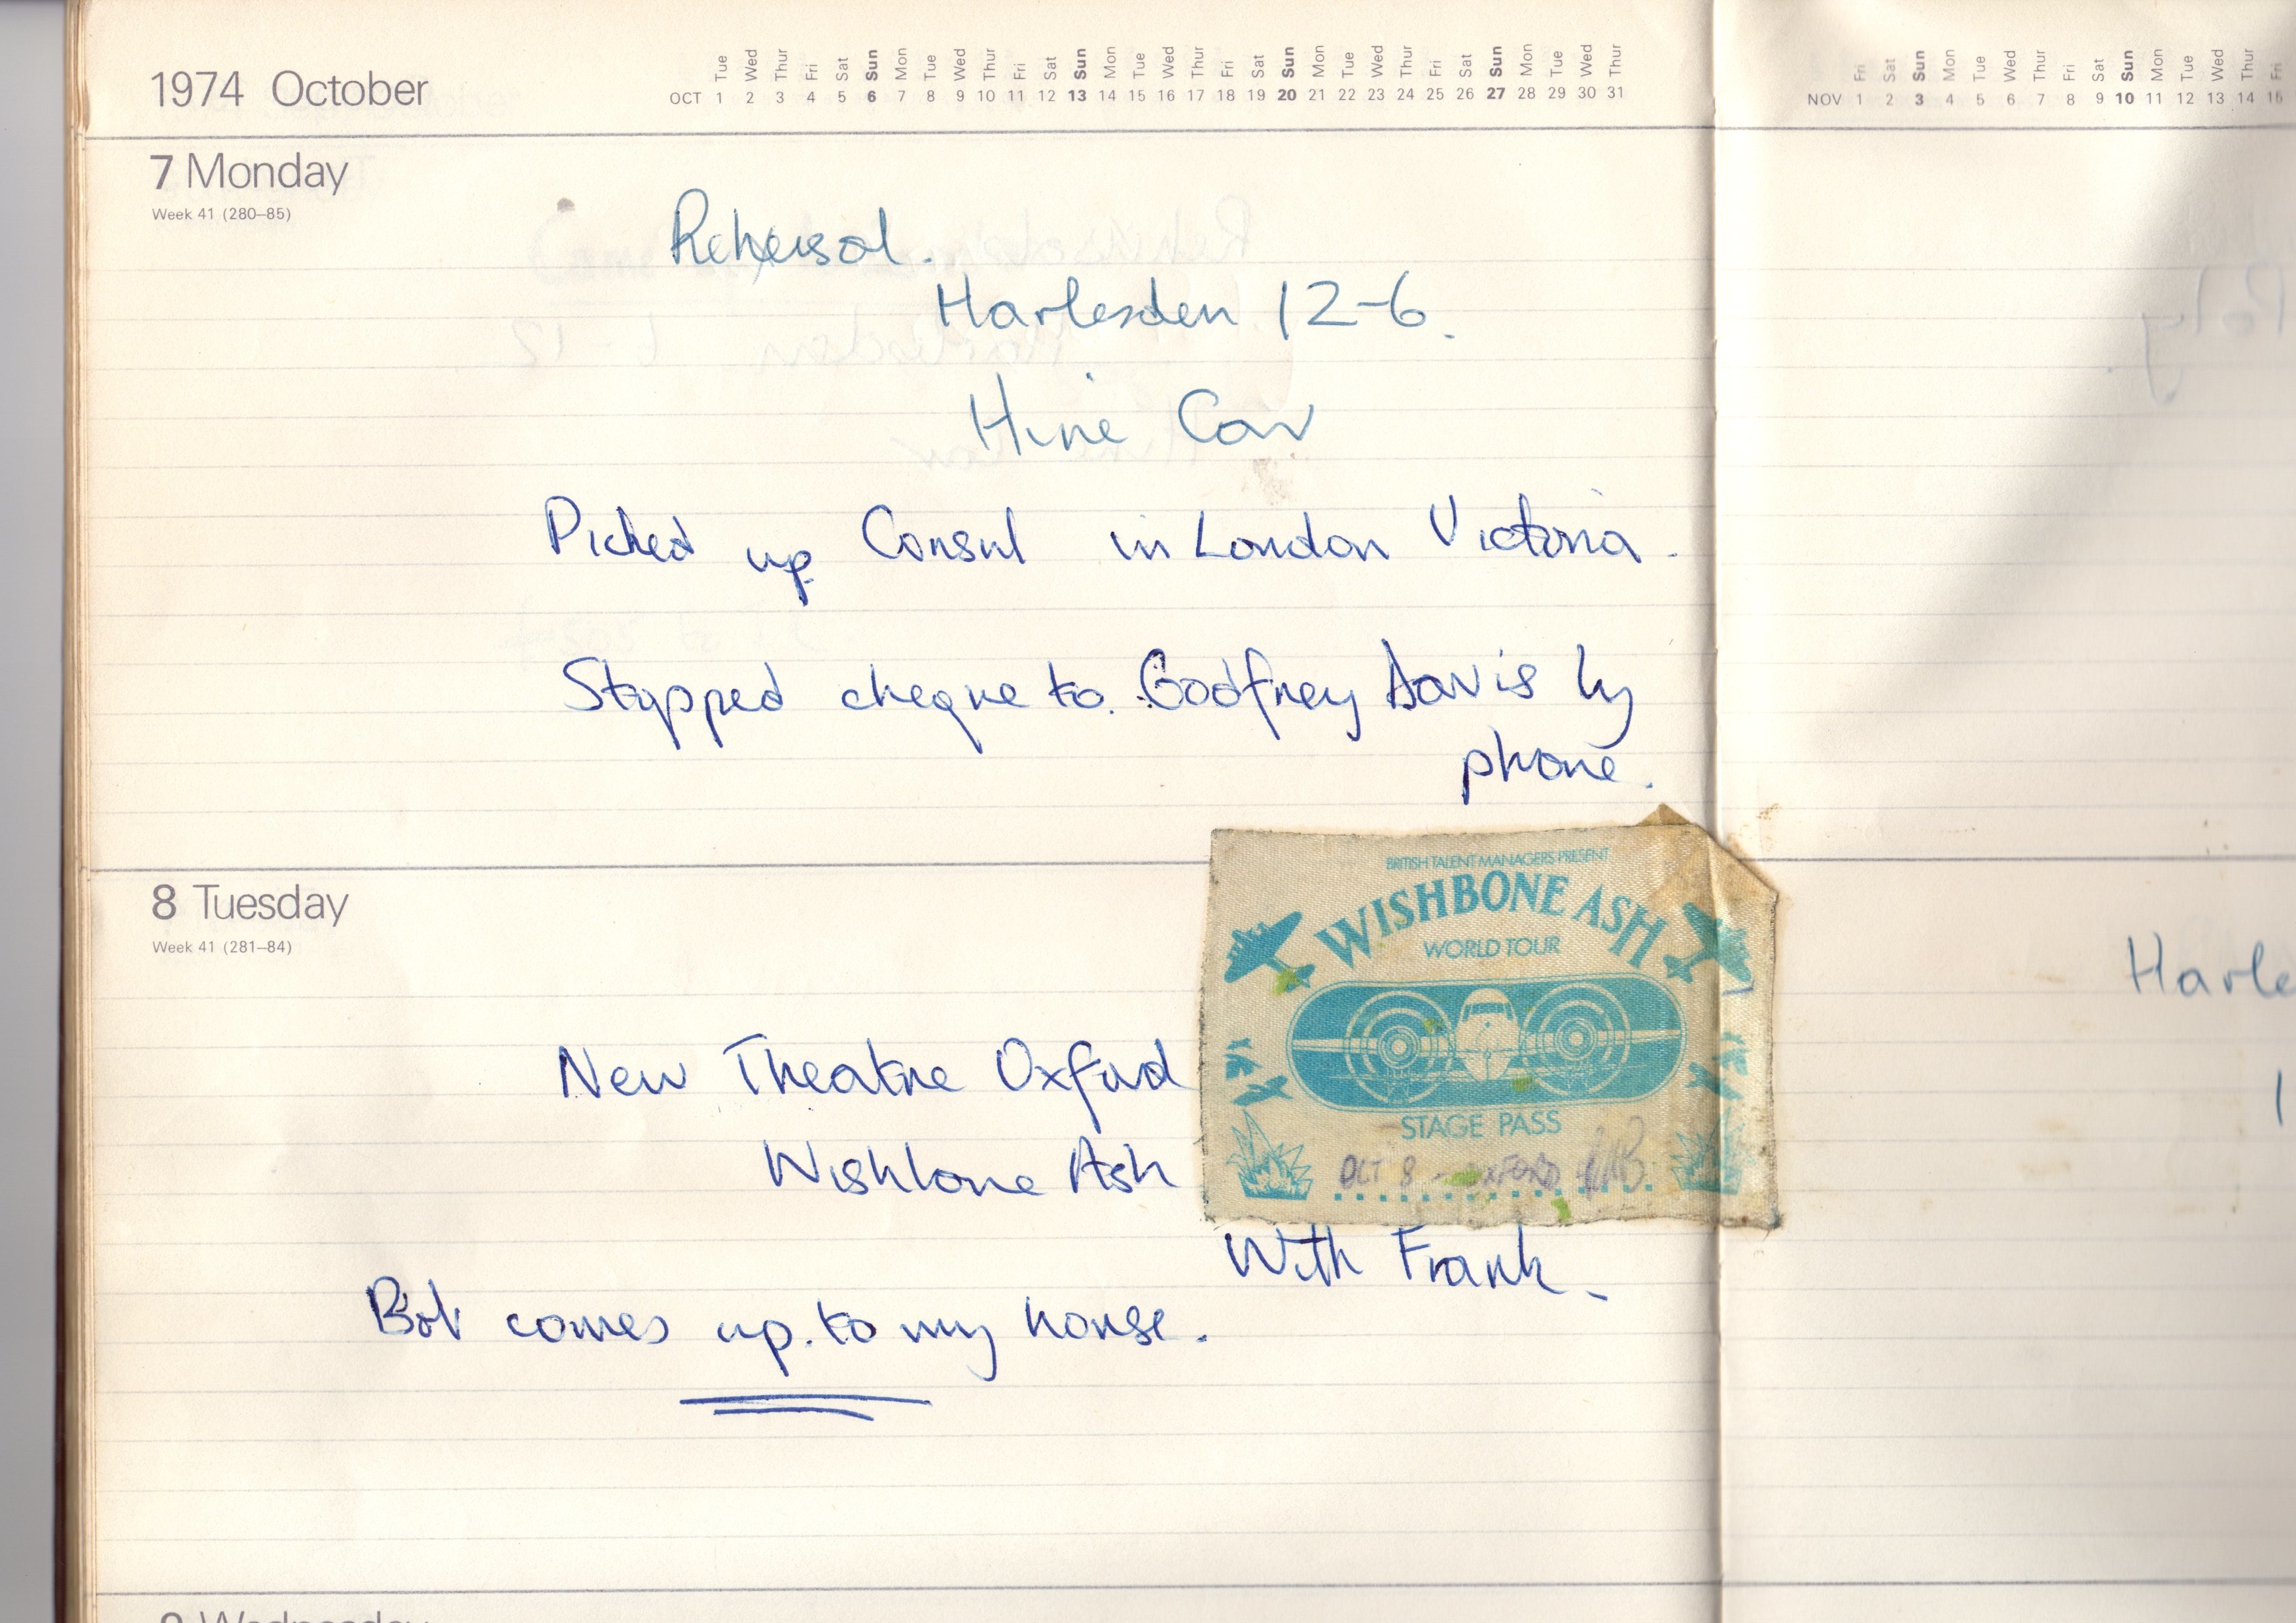 1974 October
Tue Wed Thur Fri Sat Sun Mon Tue Wed Thur Fri Sat Sun Mon Tue Wed Thur Fri Sat Sun Mon Tue Wed Thur Fri Sat Sun Mon Tue Wed Thur
OCT 1 2 3 4 5 6 7 8 9 10 11 12 13 14 15 16 17 18 19 20 21 22 23 24 25 26 27 28 29 30 31
Fri Sat Sun Mon Tue Wed Thur Fri Sat Sun Mon Tue Wed Thur Fri
NOV 1 2 3 4 5 6 7 8 9 10 11 12 13 14 15
7 Monday
Week 41 (280–85)
Rehersal.
Harlesden 12-6.
Hire Car
Picked up Consul in London Victoria.
Stopped cheque to Godfrey Davis by
phone.
8 Tuesday
Week 41 (281–84)
New Theatre Oxford
Wishbone Ash
With Frank.
Bob comes up to my house.
BRITISH TALENT MANAGERS PRESENT
WISHBONE ASH
WORLD TOUR
STAGE PASS
OCT 8 - OXFORD
Harle
9 Wednesday